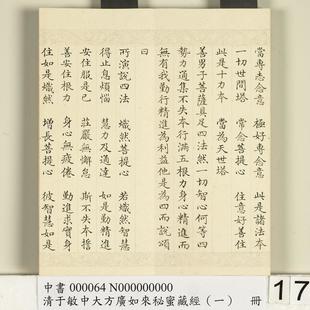 當專志念意　極好專念意　此是諸法本
一切世間塔　常念菩提心　住意好善住
此是十力本　當為天世塔
善男子菩薩具足四法然一切智心何等四
勢力通集不失本行滿五根力身心精進而
無有我勤行精進為利益他是為四而說頌
曰
所演說四法　熾然菩提心　若熾然智慧
得止息煩惱　慧力及通達　如是勤精進
安住服是己　莊嚴無懈怠　斯不失本誓
善安住根力　身心無疲倦　勤進求實身
住如是熾然　增長菩提心　彼智慧如是
中書 000064 N000000000
清于敏中大方廣如來秘蜜藏經（一） 冊
17